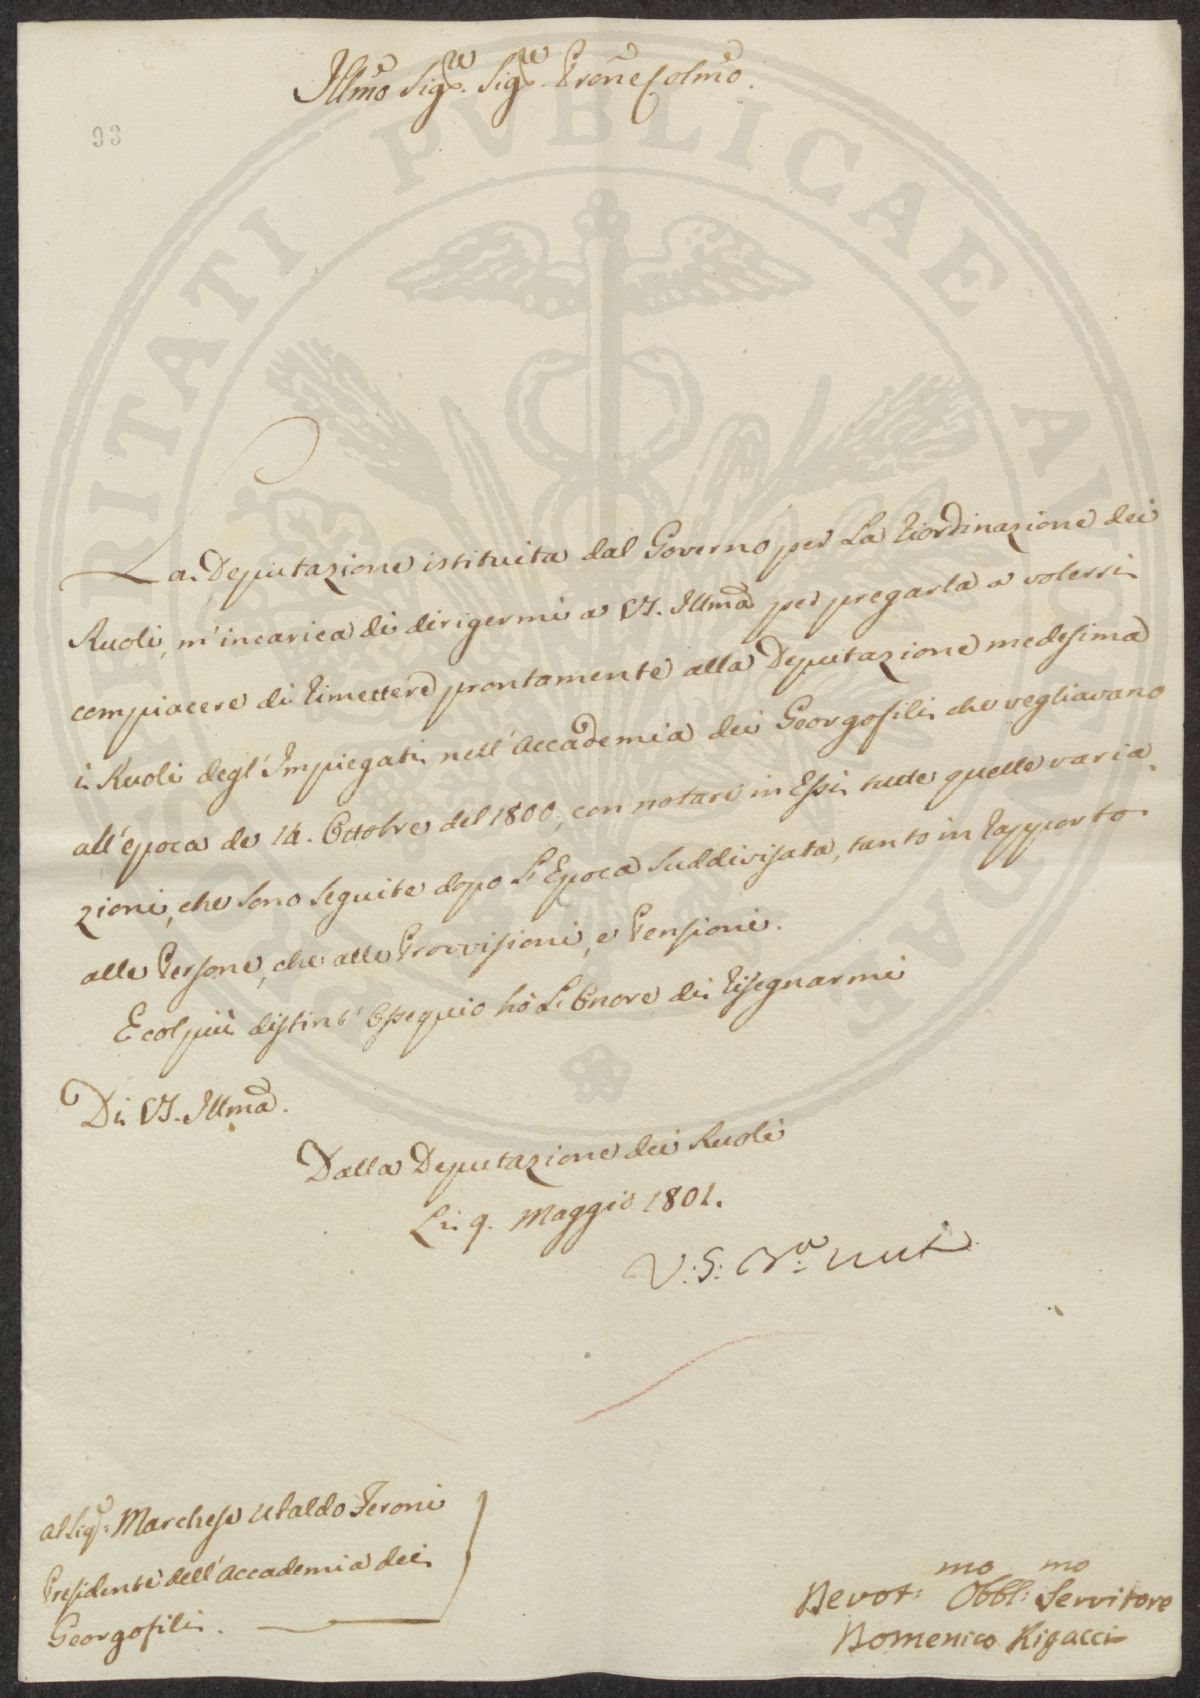 Illmo Sigre Sigre Prone Colmo.
93
La Deputazione istituita dal Governo per La Riordinazione dei
Ruoli, m'incarica di dirigermi a VS. Illma per pregarla a volersi
compiacere di Rimettere prontamente alla Deputazione medesima
i Ruoli degl'Impiegati nell'Accademia dei Georgofili che vegliavano
all'epoca de 14. Ottobre del 1800, con notare in Essi tutte quelle varia-
zioni, che sono seguite dopo L'Epoca suddivisata, tanto in Rapporto
alle Persone, che alle Provvisioni, e Pensioni.
E col più distint' Ossequio hò L'Onore di Risegnarmi
Di VS. Illma.
Dalla Deputazione dei Ruoli
Li. 9. Maggio 1801.
V: S:
al Sig: Marchese Ubaldo Feroni
Presidente dell'Accademia dei
Georgofili.
Devot:mo Obbl:mo Servitore
Domenico Rigacci
PROSPERITATI PVBLICAE AVGENDAE